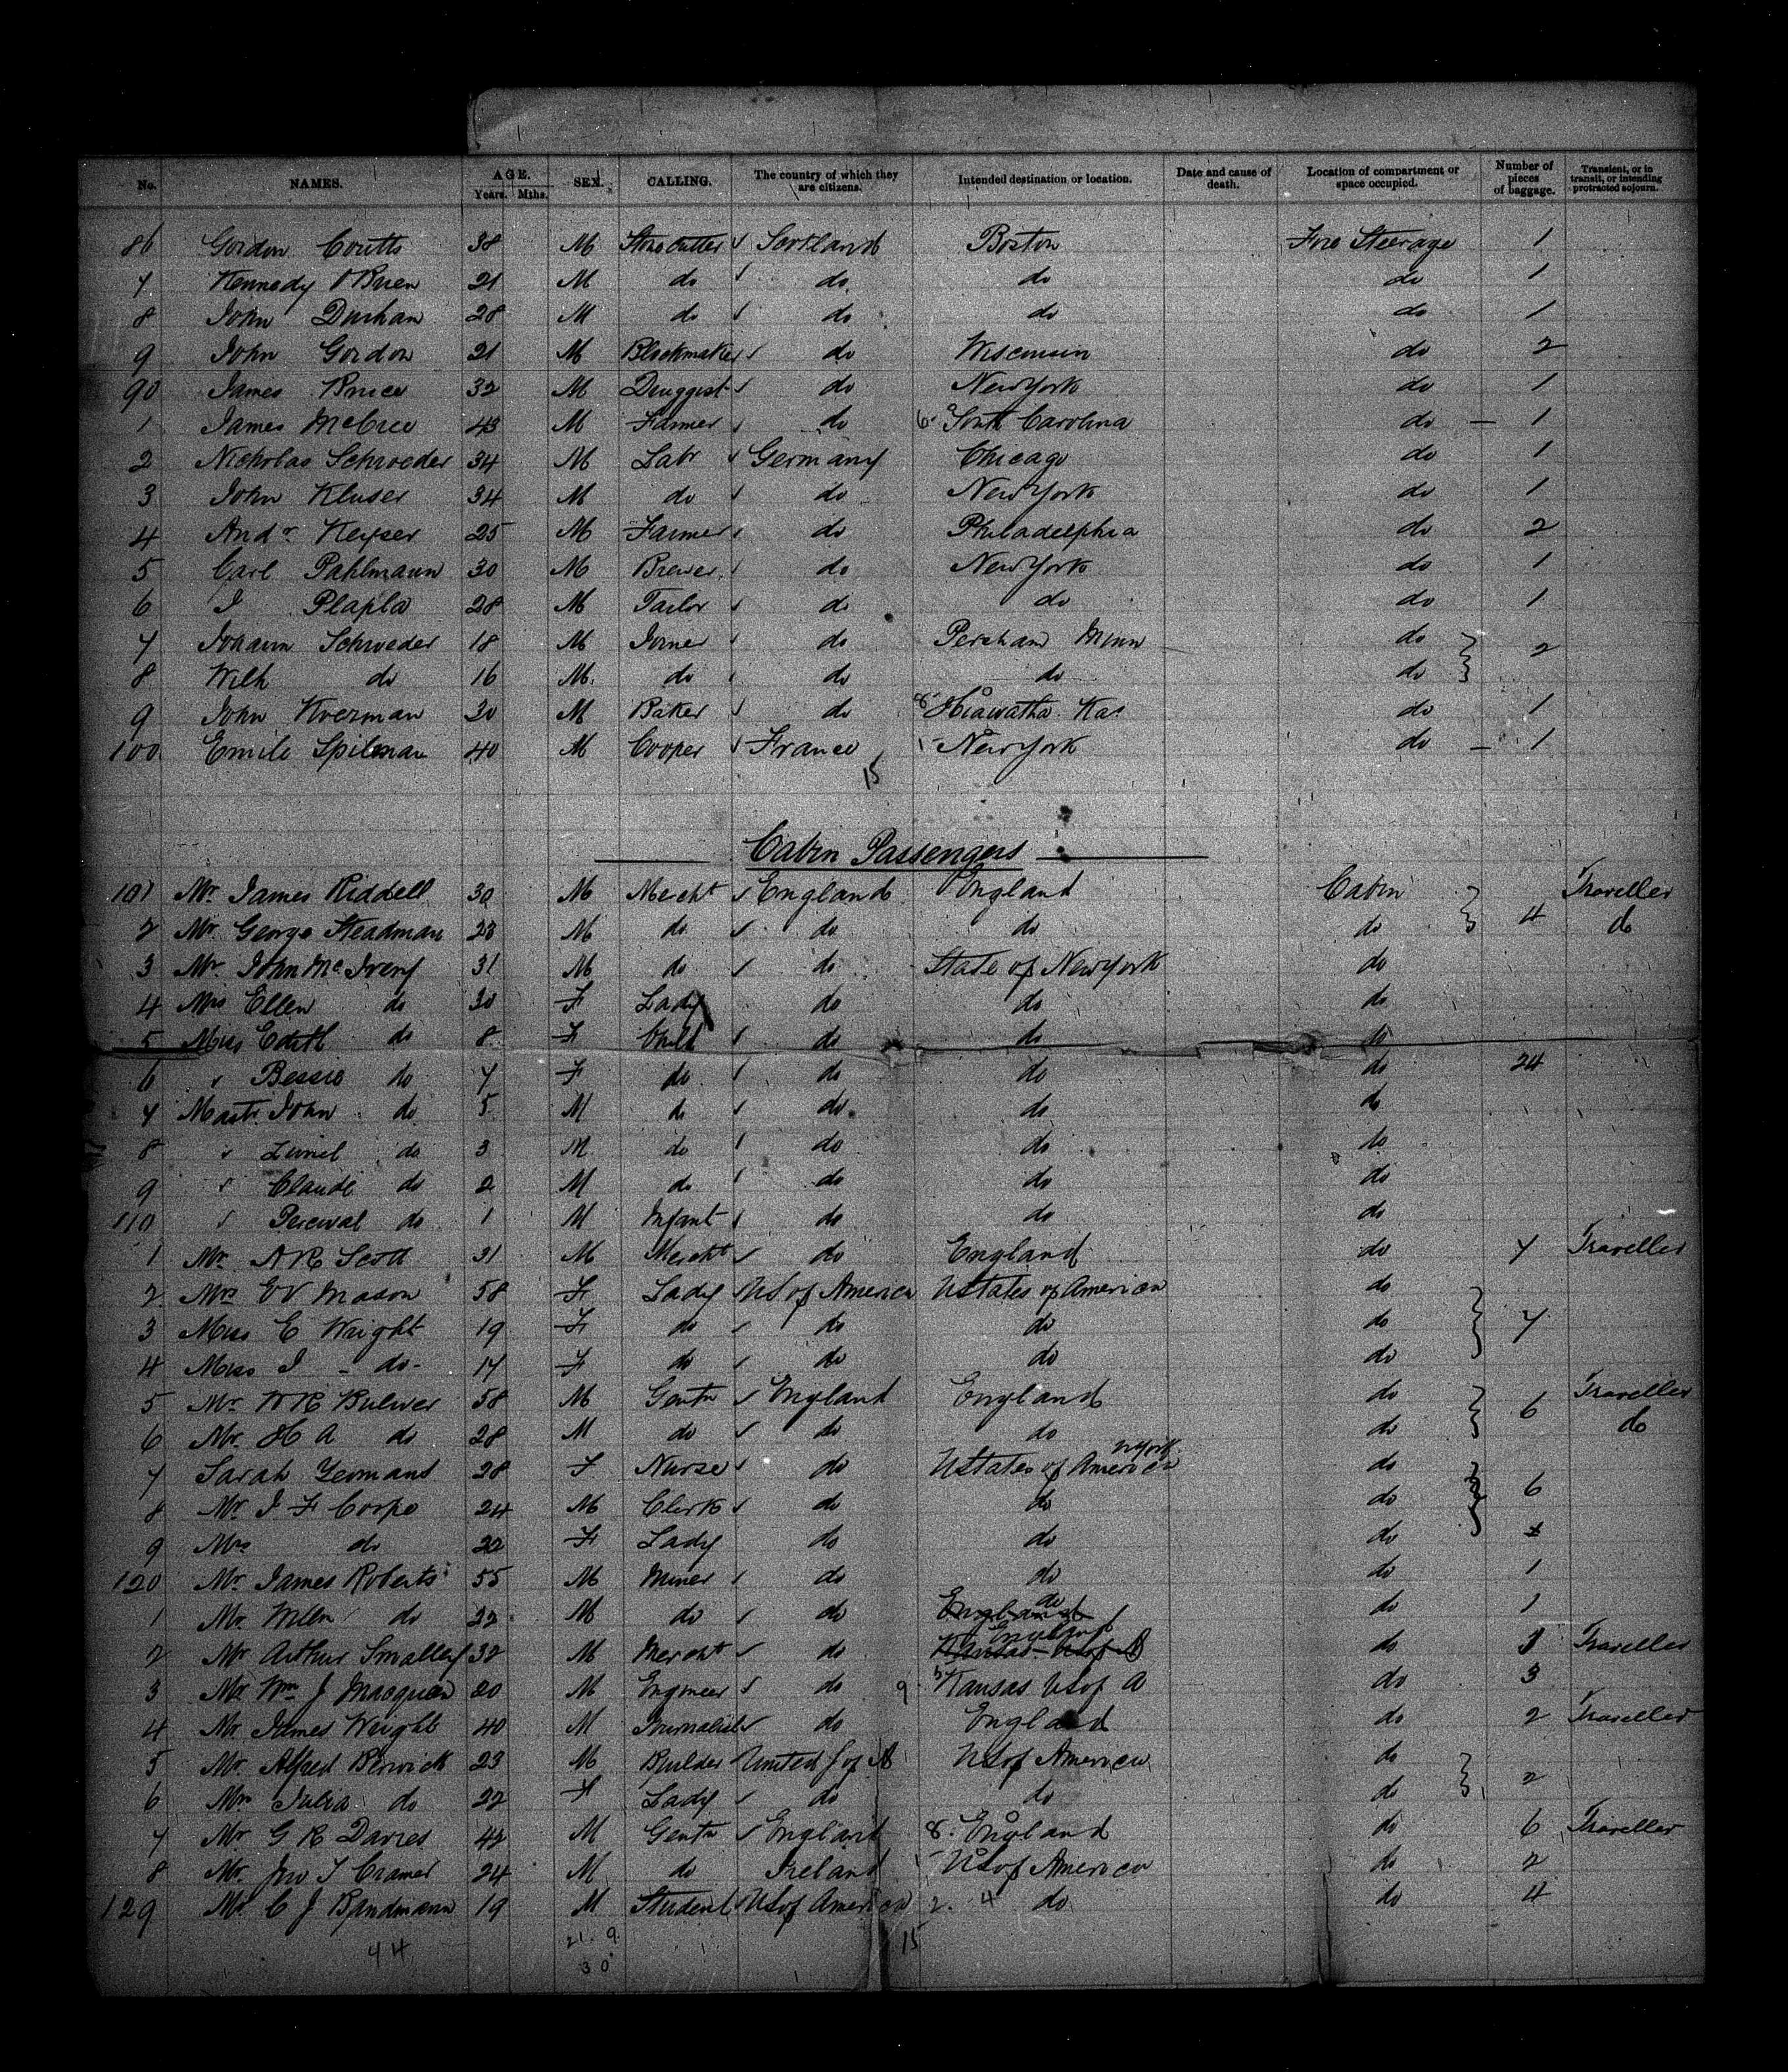 No. NAMES. AGE. Years. Mths. SEX. CALLING. The country of which they are citizens. Intended destination or location. Date and cause of death. Location of compartment or space occupied. Number of pieces of baggage. Transient, or in transit, or intending protracted sojourn.
86 Gordon Coutts 38 M Stonecutter Scotland Boston Fore Steerage 1
7 Kennedy OBrien 21 M do do do do 1
8 John Durhan 28 M do do do do 1
9 John Gordon 21 M Blockmaker do Wisconsin do 2
90 James Bruce 32 M Druggist do New York do 1
1 James McCree 43 M Farmer do 6 South Carolina do 1
2 Nicholas Schroeder 34 M Labr Germany Chicago do 1
3 John Kluser 34 M do do New York do 1
4 Andr Keyser 25 M Farmer do Philadelphia do 2
5 Carl Pahlmann 30 M Brewer do New York do 1
6 J Plapla 28 M Tailor do do do 1
7 Johann Schroeder 18 M Joiner do Perham Minn do 2
8 Wilh do 16 M do do do do
9 John Kverman 30 M Baker do 8 Hiawatha Kas do 1
100 Emile Spilman 40 M Cooper France 1 New York do 1
15
Cabin Passengers
101 Mr James Riddell 30 M Mercht England England Cabin 4 Traveller
2 Mr George Steadman 23 M do do do do do
3 Mr John McIveny 31 M do do State of New York do
4 Mrs Ellen do 30 F Lady do do do
5 Miss Edith do 8 F Child do do do
6 " Bessie do 7 F do do do do 24
7 Mastr John do 5 M do do do do
8 " Lionel do 3 M do do do do
9 " Claude do 2 M do do do do
110 " Percival do 1 M Infant do do do
1 Mr A R Scott 31 M Mercht do England do 7 Traveller
2 Mrs E V Mason 58 F Lady US of America UStates of America do
3 Miss E Wright 19 F do do do do 7
4 Miss J - do - 17 F do do do do
5 Mr W R Bulwer 58 M Gentn England England do 6 Traveller
6 Mr H A do 28 M do do do do do
7 Sarah Yeomans 28 F Nurse do UStates of America NYork do
8 Mr J F Corpe 24 M Clerk do do do 6
9 Mrs do 22 F Lady do do do
120 Mr James Roberts 55 M Miner do do do 1
1 Mr Willm do 22 M do do England do do 1
2 Mr Arthur Smalley 32 M Mercht do Kansas US of A England do 3 Traveller
3 Mr Wm J Macqueen 20 M Engineer do 9 Kansas US of A do 3
4 Mr James Wright 40 M Journalist do England do 2 Traveller
5 Mr Alfred Berwick 23 M Builder United S of A US of America do 2
6 Mrs Julia do 22 F Lady do do do
7 Mr G R Davies 42 M Gentn England 8 England do 6 Traveller
8 Mr Jno T Cramer 24 M do Ireland 1 US of America do 2
129 Mr C J Bandmann 19 M Student US of America 2 4 do do 4
44 21 9 15
30